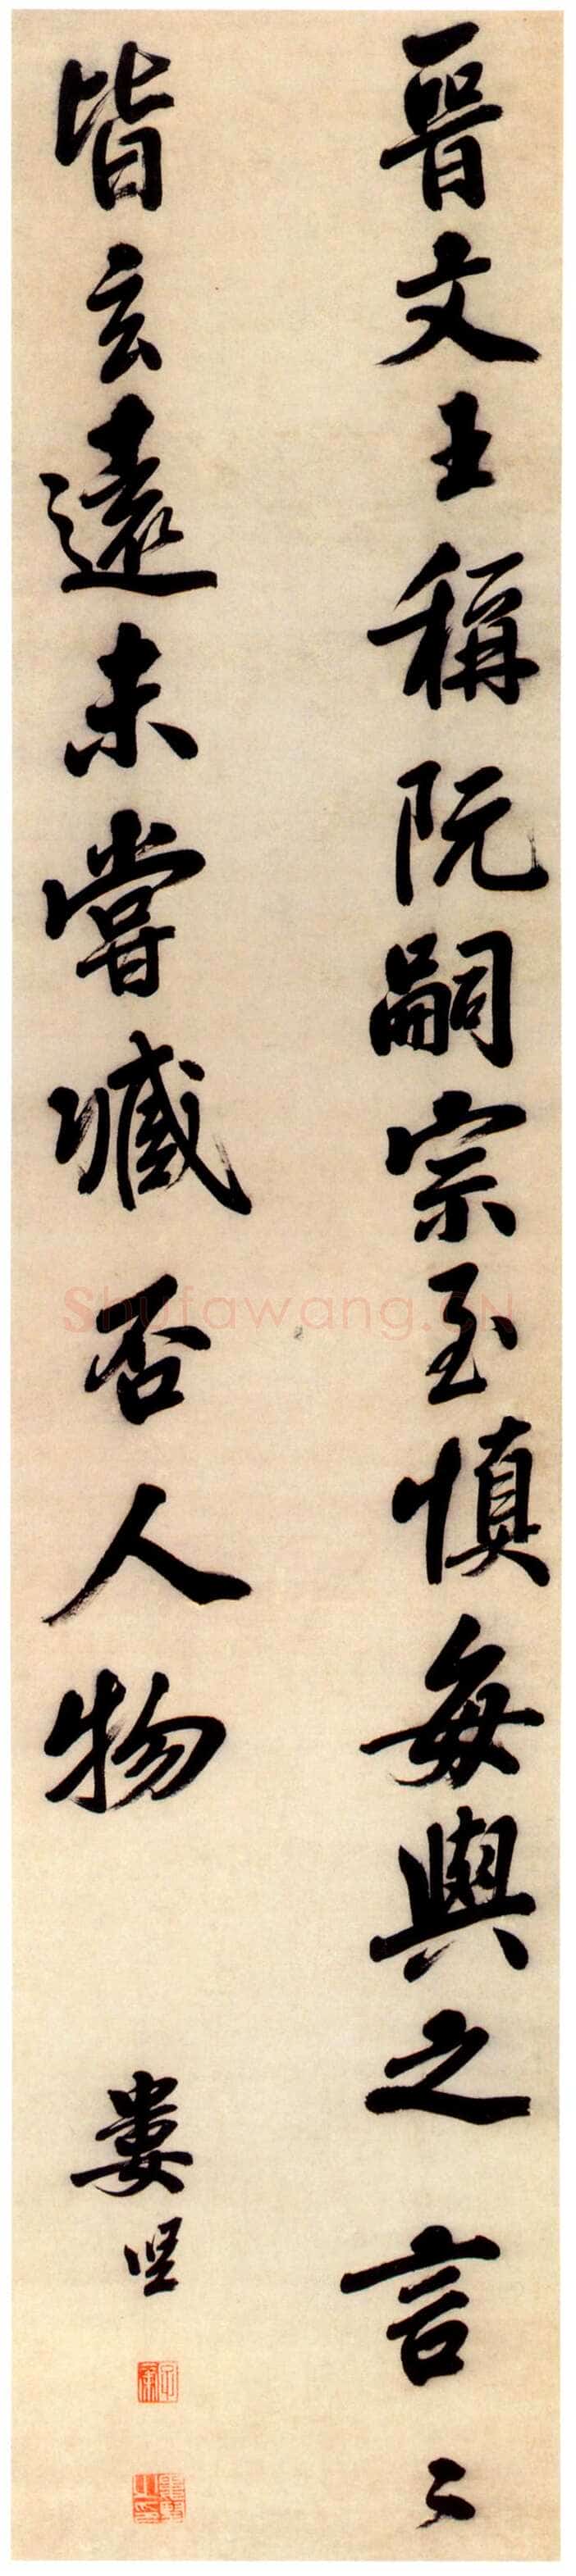 晋文王稱阮嗣宗至慎每與之言〻
皆玄遠未嘗臧否人物
婁堅
Shufawang.CN